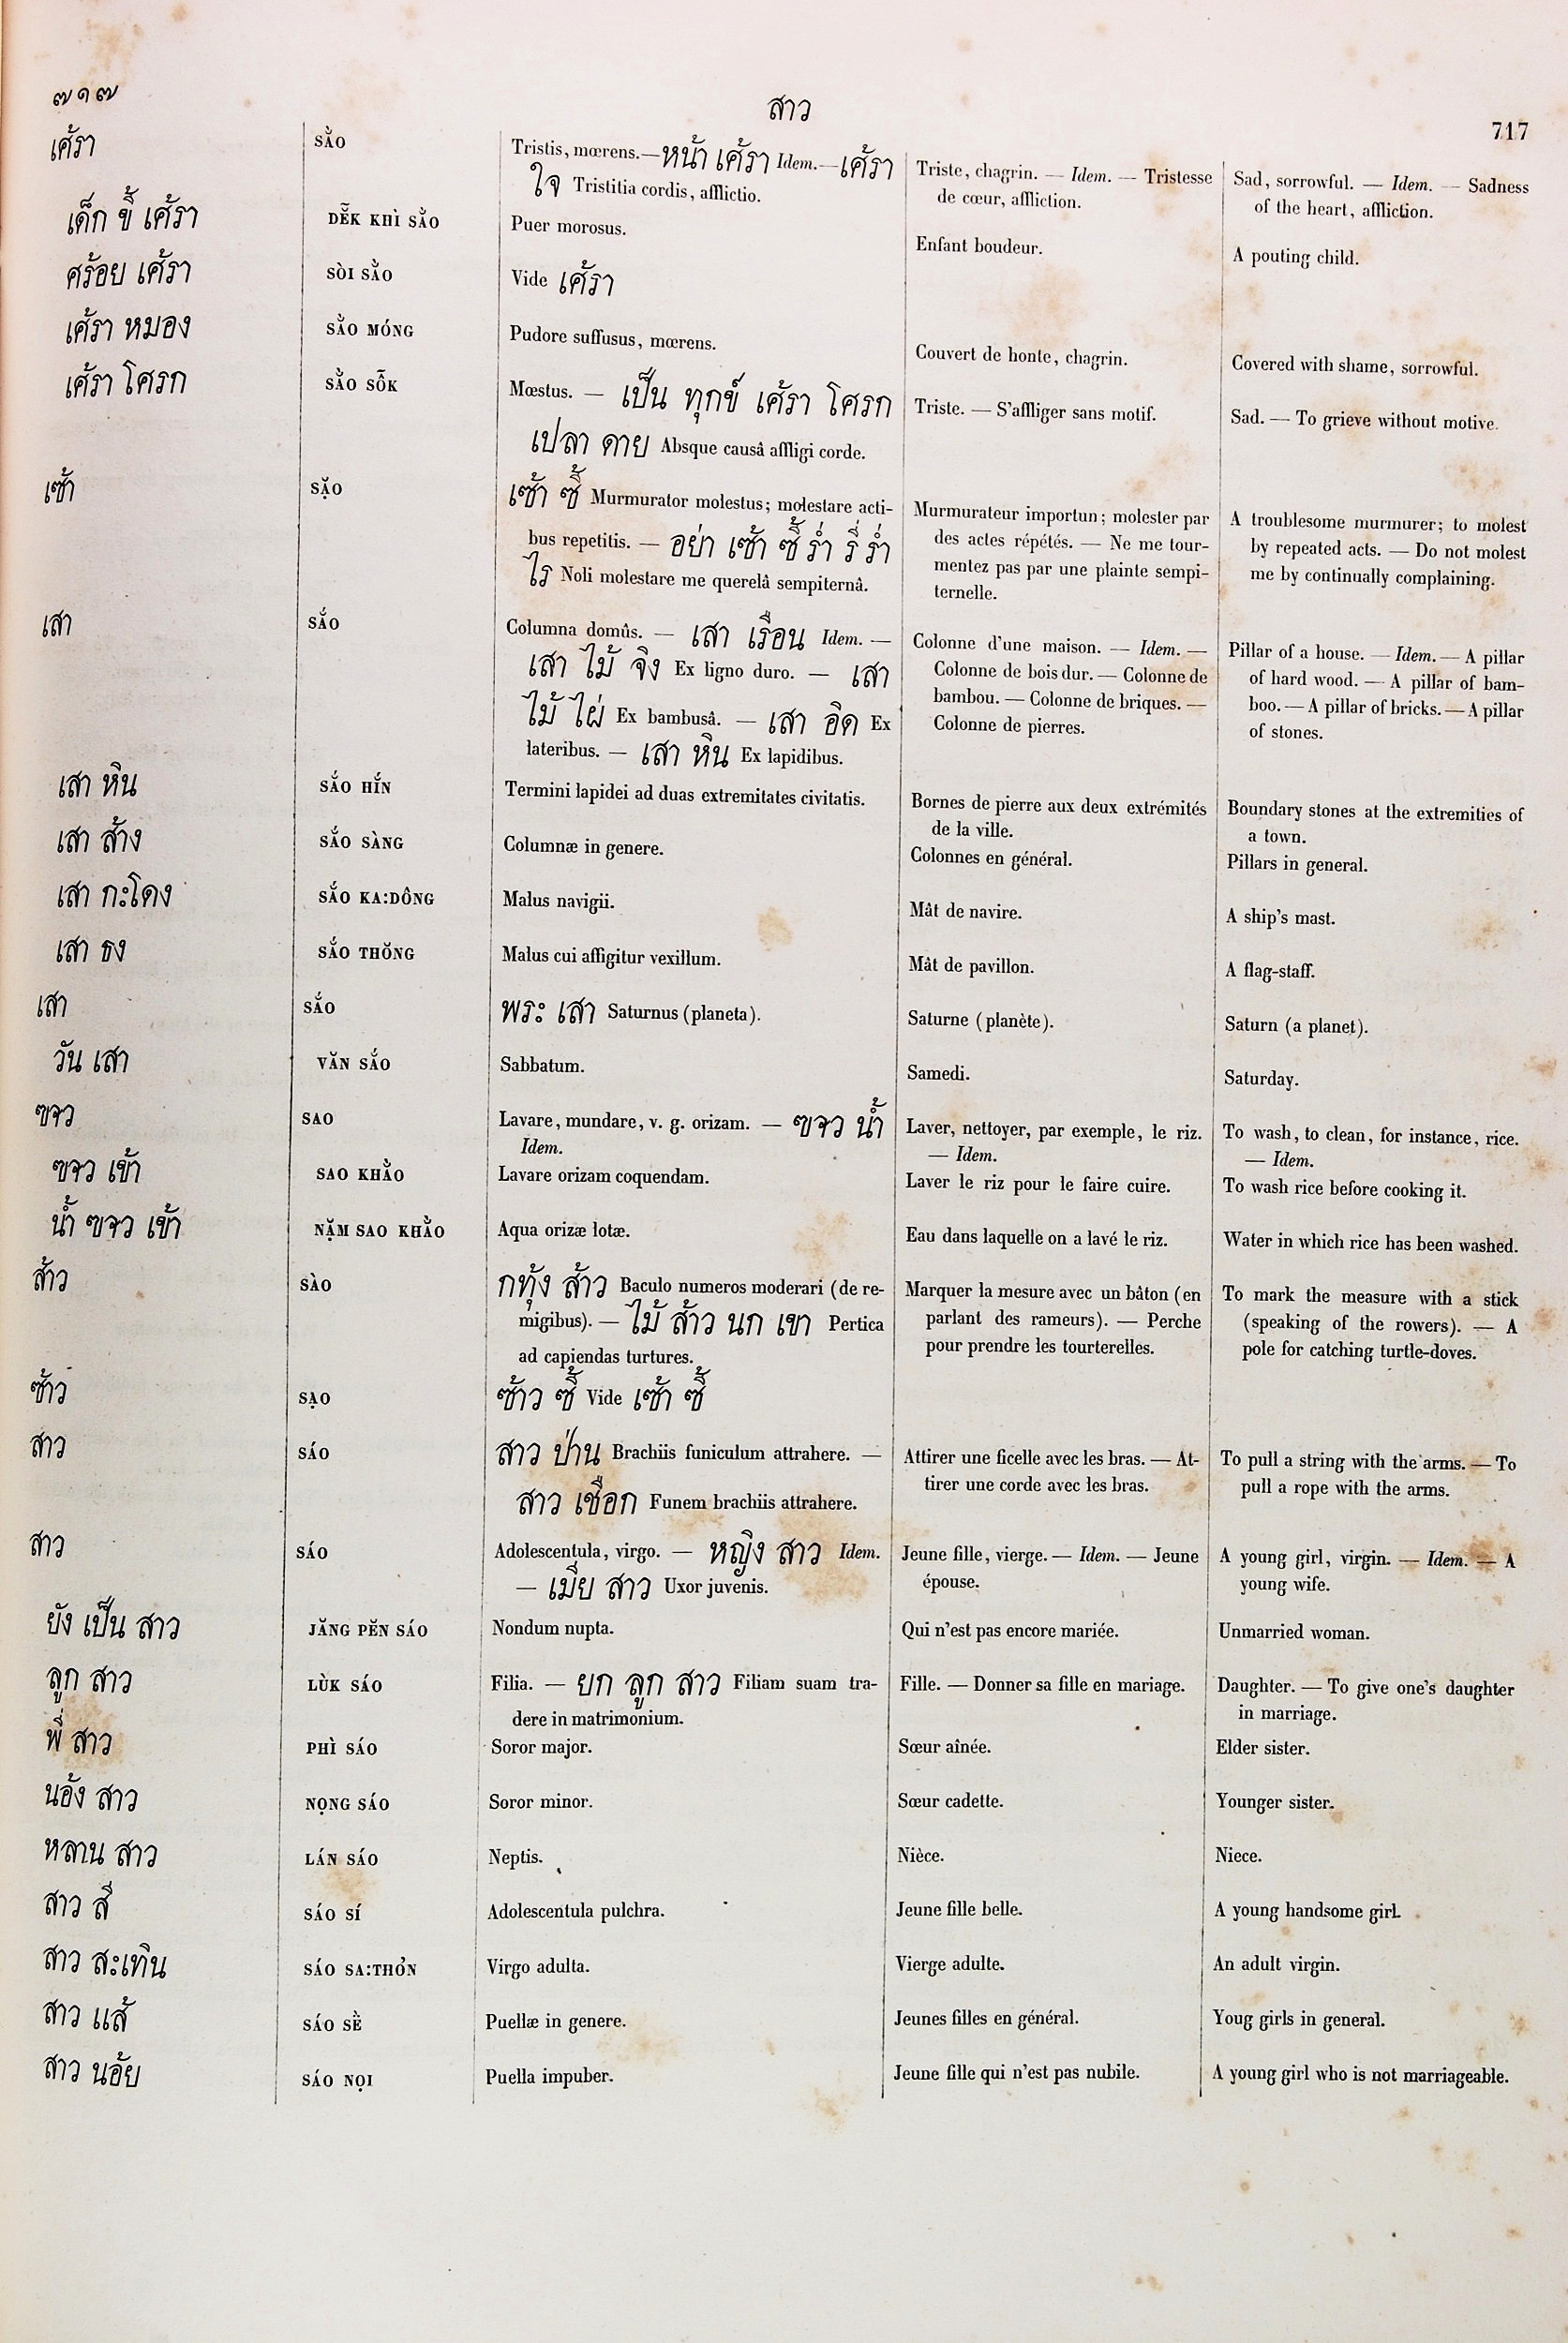 ๗๑๗
สาว
717
เศร้า SǍO Tristis, mœrens.—หน้า เศร้า Idem.—เศร้า Triste, chagrin. — Idem. — Tristesse Sad, sorrowful. — Idem. — Sadness
ใจ Tristitia cordis, afflictio. de cœur, affliction. of the heart, affliction.
เด็ก ขี้ เศร้า DĔK KHÌ SÀO Puer morosus. Enfant boudeur. A pouting child.
ศร้อย เศร้า SÒI SÀO Vide เศร้า
เศร้า หมอง SÀO MÓNG Pudore suffusus, mœrens. Couvert de honte, chagrin. Covered with shame, sorrowful.
เศร้า โศรก SÀO SÔK Mœstus. — เป็น ทุกข์ เศร้า โศรก Triste. — S'affliger sans motif. Sad. — To grieve without motive.
เปลา ดาย Absque causâ affligi corde.
เซ้า SẶO เซ้า ซี้ Murmurator molestus; molestare acti- Murmurateur importun; molester par A troublesome murmurer; to molest
bus repetitis. — อย่า เซ้า ซี้ ร่ำ รี่ ร่ำ des actes répétés. — Ne me tour- by repeated acts. — Do not molest
ไร Noli molestare me querelâ sempiternâ. mentez pas par une plainte sempi- me by continually complaining.
ternelle.
เสา SẮO Columna domûs. — เสา เรือน Idem. — Colonne d'une maison. — Idem. — Pillar of a house. — Idem. — A pillar
เสา ไม้ จิง Ex ligno duro. — เสา Colonne de bois dur. — Colonne de of hard wood. — A pillar of bam-
ไม้ ไผ่ Ex bambusâ. — เสา อิด Ex bambou. — Colonne de briques. — boo. — A pillar of bricks. — A pillar
lateribus. — เสา หิน Ex lapidibus. Colonne de pierres. of stones.
เสา หิน SẮO HĬN Termini lapidei ad duas extremitates civitatis. Bornes de pierre aux deux extrémités Boundary stones at the extremities of
de la ville. a town.
เสา ส้าง SẮO SÀNG Columnæ in genere. Colonnes en général. Pillars in general.
เสา กะโดง SẮO KA:DÔNG Malus navigii. Mât de navire. A ship's mast.
เสา ธง SẮO THŎNG Malus cui affigitur vexillum. Mât de pavillon. A flag-staff.
เสา SẮO พระ เสา Saturnus (planeta). Saturne (planète). Saturn (a planet).
วัน เสา VĂN SẮO Sabbatum. Samedi. Saturday.
ซาว SAO Lavare, mundare, v. g. orizam. — ซาว น้ำ Laver, nettoyer, par exemple, le riz. To wash, to clean, for instance, rice.
Idem. — Idem. — Idem.
ซาว เข้า SAO KHÀO Lavare orizam coquendam. Laver le riz pour le faire cuire. To wash rice before cooking it.
น้ำ ซาว เข้า NẶM SAO KHÀO Aqua orizæ lotæ. Eau dans laquelle on a lavé le riz. Water in which rice has been washed.
ส้าว SÀO กทุ้ง ส้าว Baculo numeros moderari (de re- Marquer la mesure avec un bâton (en To mark the measure with a stick
migibus). — ไม้ ส้าว นก เขา Pertica parlant des rameurs). — Perche (speaking of the rowers). — A
ad capiendas turtures. pour prendre les tourterelles. pole for catching turtle-doves.
ซ้าว SẠO ซ้าว ซี้ Vide เซ้า ซี้
สาว SÁO สาว ป่าน Brachiis funiculum attrahere. — Attirer une ficelle avec les bras. — At- To pull a string with the arms. — To
สาว เชือก Funem brachiis attrahere. tirer une corde avec les bras. pull a rope with the arms.
สาว SÁO Adolescentula, virgo. — หญิง สาว Idem. Jeune fille, vierge. — Idem. — Jeune A young girl, virgin. — Idem. — A
— เมีย สาว Uxor juvenis. épouse. young wife.
ยัง เป็น สาว JĂNG PĔN SÁO Nondum nupta. Qui n'est pas encore mariée. Unmarried woman.
ลูก สาว LÙK SÁO Filia. — ยก ลูก สาว Filiam suam tra- Fille. — Donner sa fille en mariage. Daughter. — To give one's daughter
dere in matrimonium. in marriage.
พี่ สาว PHÌ SÁO Soror major. Sœur aînée. Elder sister.
น้อง สาว NỌNG SÁO Soror minor. Sœur cadette. Younger sister.
หลาน สาว LÁN SÁO Neptis. Nièce. Niece.
สาว สี SÁO SÍ Adolescentula pulchra. Jeune fille belle. A young handsome girl.
สาว สะเทิน SÁO SA:THƠN Virgo adulta. Vierge adulte. An adult virgin.
สาว แส้ SÁO SÈ Puellæ in genere. Jeunes filles en général. Youg girls in general.
สาว น้อย SÁO NỌI Puella impuber. Jeune fille qui n'est pas nubile. A young girl who is not marriageable.